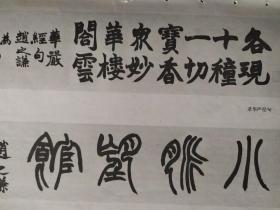 各現
十種
一切
寶香
衆妙
華樓
閣雲
華嚴
經句
趙之謙
小脈望館
趙之謙